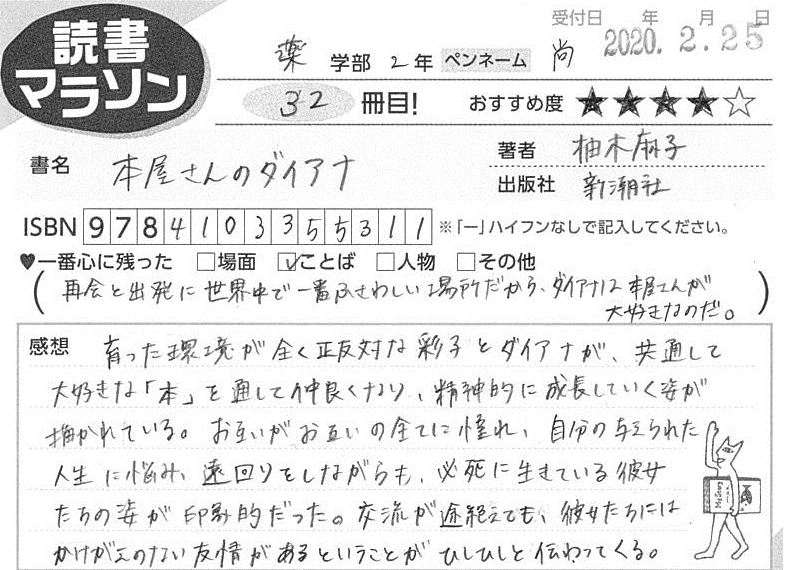 読書
マラソン
受付日 年 月 日
2020. 2. 25
薬 学部 2 年 ペンネーム 尚
32 冊目! おすすめ度 ★★★★☆
書名 本屋さんのダイアナ
著者 柚木麻子
出版社 新潮社
ISBN 9784103355311 ※「-」ハイフンなしで記入してください。
♥一番心に残った □場面 ☑ことば □人物 □その他
(再会と出発に世界中で一番ふさわしい場所だから、ダイアナは本屋さんが
大好きなのだ。)
感想 育った環境が全く正反対な彩子とダイアナが、共通して
大好きな「本」を通して仲良くなり、精神的に成長していく姿が
描かれている。お互いがお互いの全てに憧れ、自分の与えられた
人生に悩み、遠回りをしながらも、必死に生きている彼女
たちの姿が印象的だった。交流が途絶えても、彼女たちには
かけがえのない友情があるということがひしひしと伝わってくる。